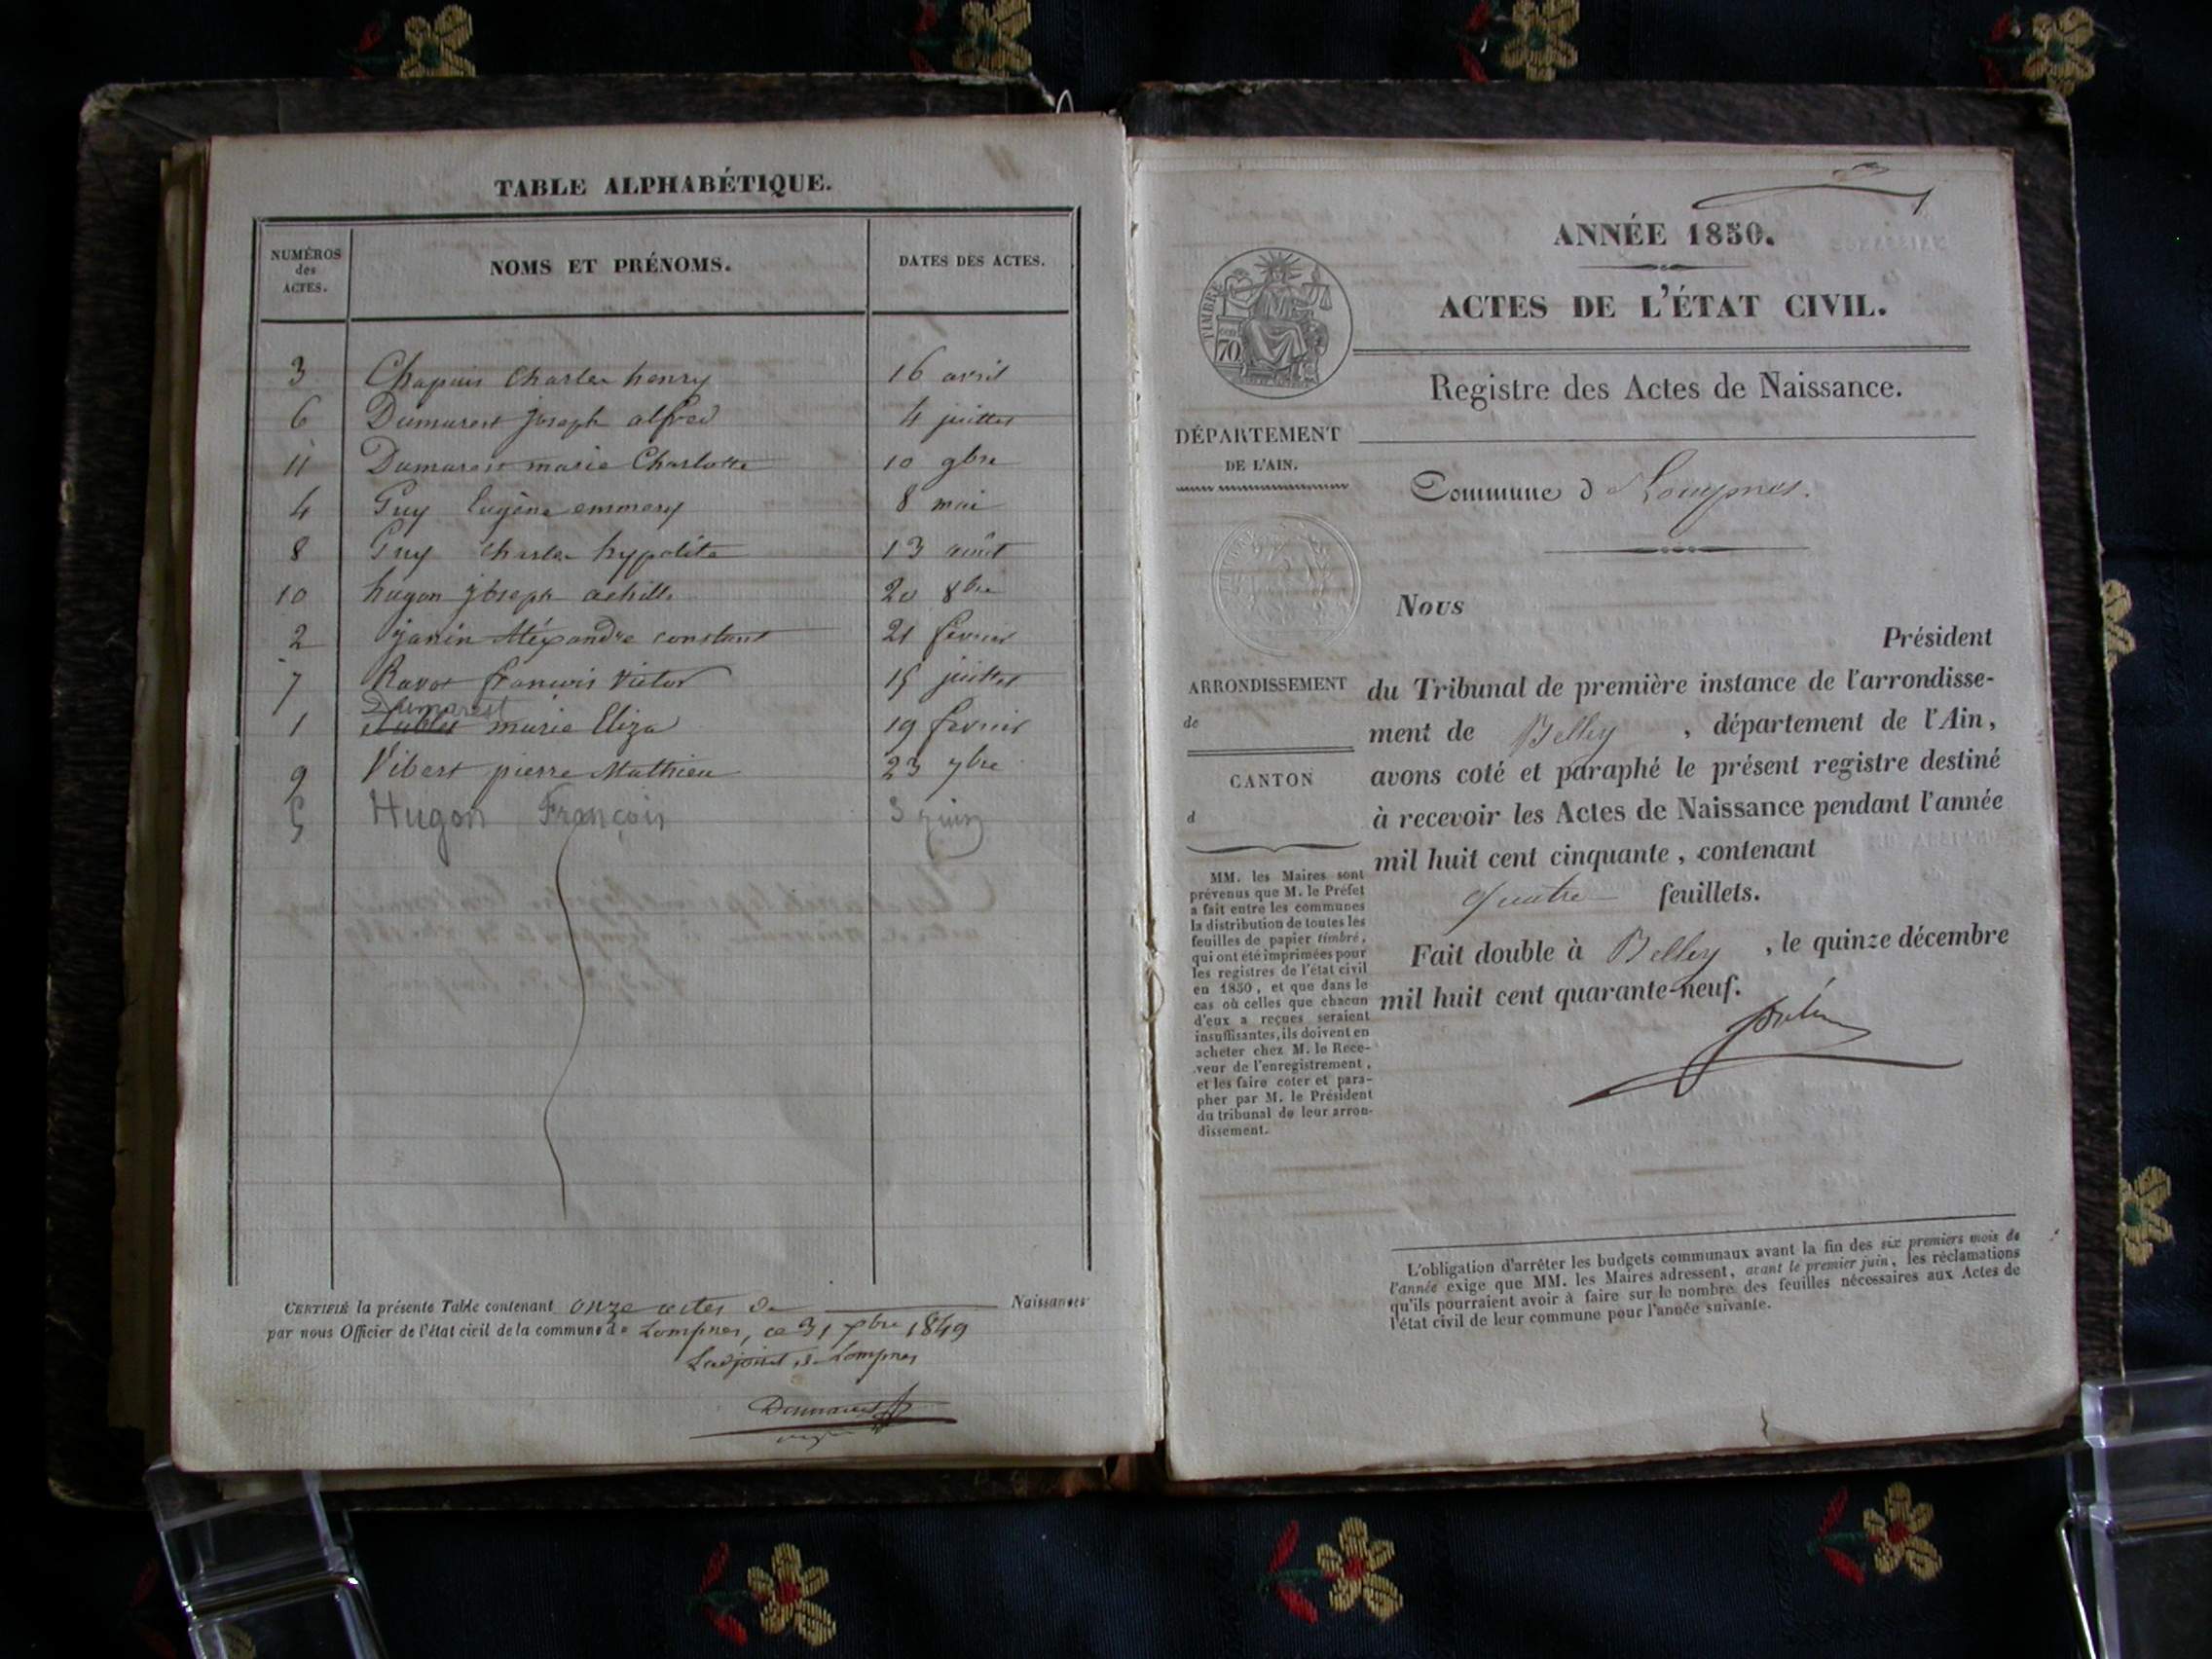 TABLE ALPHABÉTIQUE.
NUMÉROS des ACTES. NOMS ET PRÉNOMS. DATES DES ACTES.
3 Chapuis Charles henry 16 avril
6 Dumarest joseph alfred 4 juillet
11 Dumarest marie Charlotte 10 9bre
4 Guy Eugène emmery 8 mai
8 Guy Charles hypolite 13 août
10 hugon joseph achille 20 8bre
2 janin Aléxandre constant 21 février
7 Ravot francois Victor 15 juillet
Dumarest
1 marie Eliza 19 février
9 Vibert pierre Mathieu 23 7bre
5 Hugon François 3 juin
CERTIFIÉ la présente Table contenant onze actes de Naissances
par nous Officier de l'état civil de la commune de Lompnes, ce 31 xbre 1849
L'adjoint de Lompnes
Dumarest
ANNÉE 1850.
ACTES DE L'ÉTAT CIVIL.
Registre des Actes de Naissance.
TIMBRE
70
DÉPARTEMENT
DE L'AIN.
Commune d Lompnes.
Nous
Président
du Tribunal de première instance de l'arrondisse-
ment de Belley , département de l'Ain,
avons coté et paraphé le présent registre destiné
à recevoir les Actes de Naissance pendant l'année
mil huit cent cinquante, contenant
quatre feuillets.
Fait double à Belley , le quinze décembre
mil huit cent quarante-neuf.
ARRONDISSEMENT
de
CANTON
d
MM. les Maires sont
prévenus que M. le Préfet
a fait entre les communes
la distribution de toutes les
feuilles de papier timbré,
qui ont été imprimées pour
les registres de l'état civil
en 1850, et que dans le
cas où celles que chacun
d'eux a reçues seraient
insuffisantes, ils doivent en
acheter chez M. le Rece-
veur de l'enregistrement,
et les faire coter et para-
pher par M. le Président
du tribunal de leur arron-
dissement.
L'obligation d'arrêter les budgets communaux avant la fin des six premiers mois de
l'année exige que MM. les Maires adressent, avant le premier juin, les réclamations
qu'ils pourraient avoir à faire sur le nombre des feuilles nécessaires aux Actes de
l'état civil de leur commune pour l'année suivante.